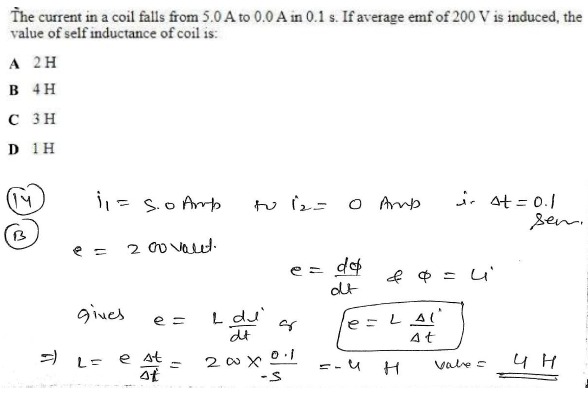 The current in a coil falls from 5.0 A to 0.0 A in 0.1 s. If average emf of 200 V is induced, the
value of self inductance of coil is:
A 2 H
B 4 H
C 3 H
D 1 H
(14) i₁ = 5.0 Amp to i₂ = 0 Amp in Δt = 0.1
Sec.
(B)
e = 200 volt.
e = dϕ/dt & ϕ = Li
gives e = L di/dt or e = L Δi/Δt
⇒ L = e Δt/Δi = 200 × 0.1/-5 = -4 H Value = 4 H